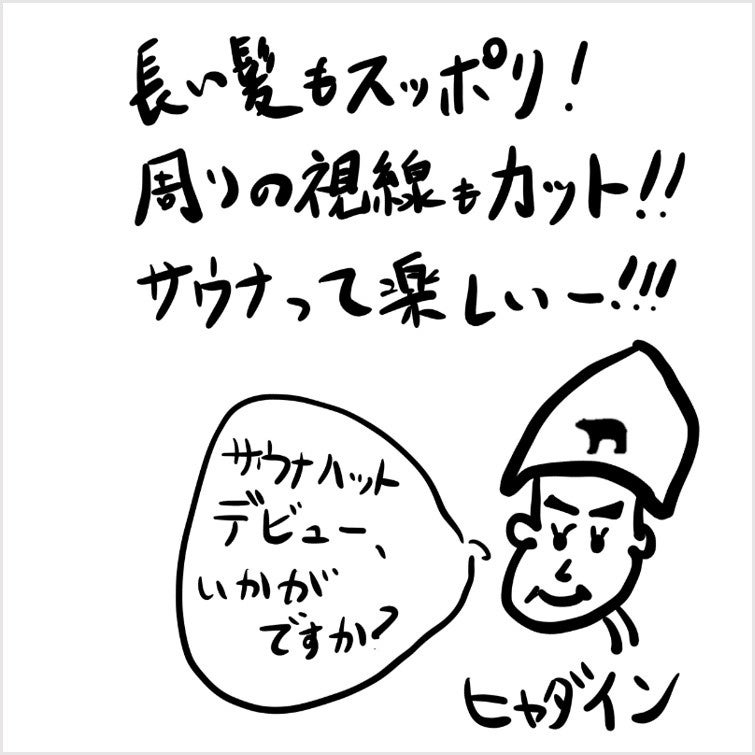 長い髪もスッポリ!
周りの視線もカット!!
サウナって楽しいー!!!
サウナハット
デビュー、
いかが
ですか?
ヒャダイン